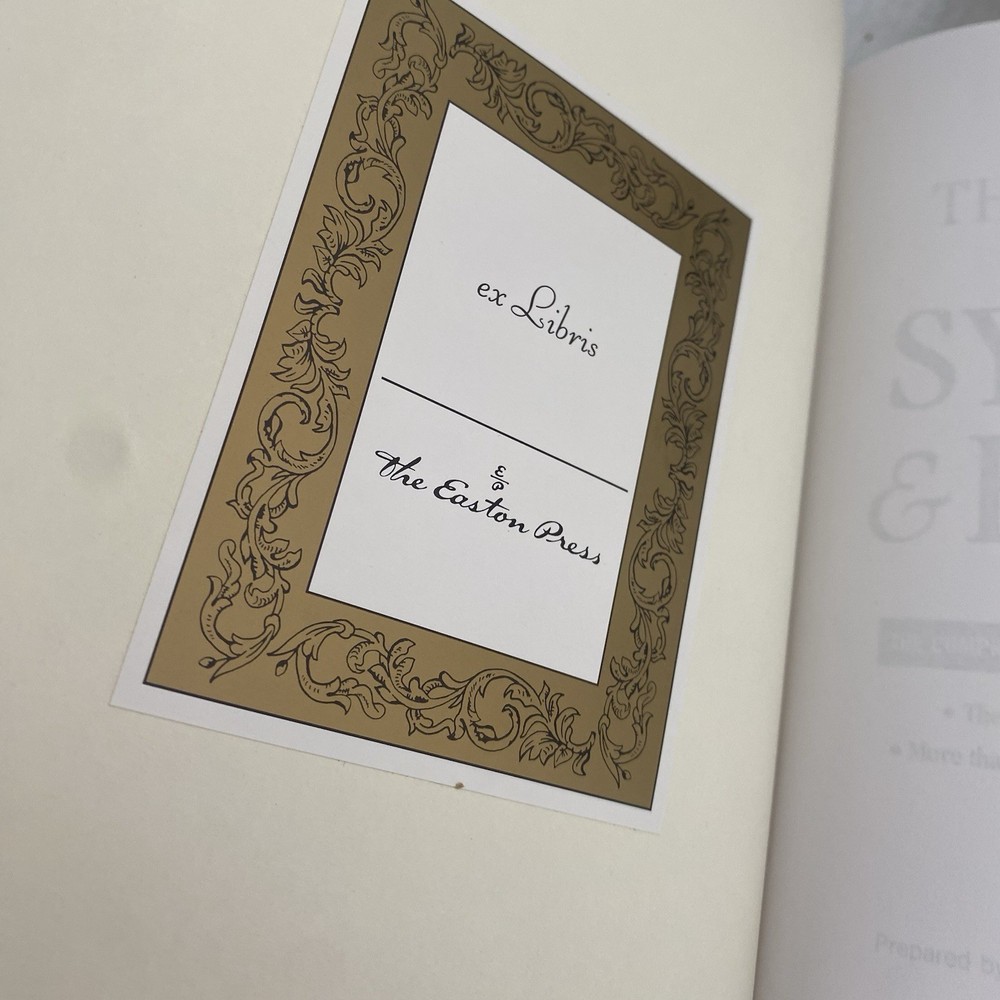 ex Libris
E
P
The Easton Press
TH
SY
&
• Th
• More tha
Prepared by